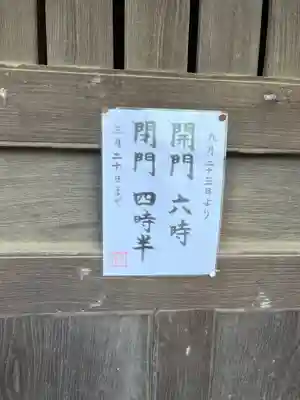 九月二十三日より
開門 六時
閉門 四時半
三月二十日まで